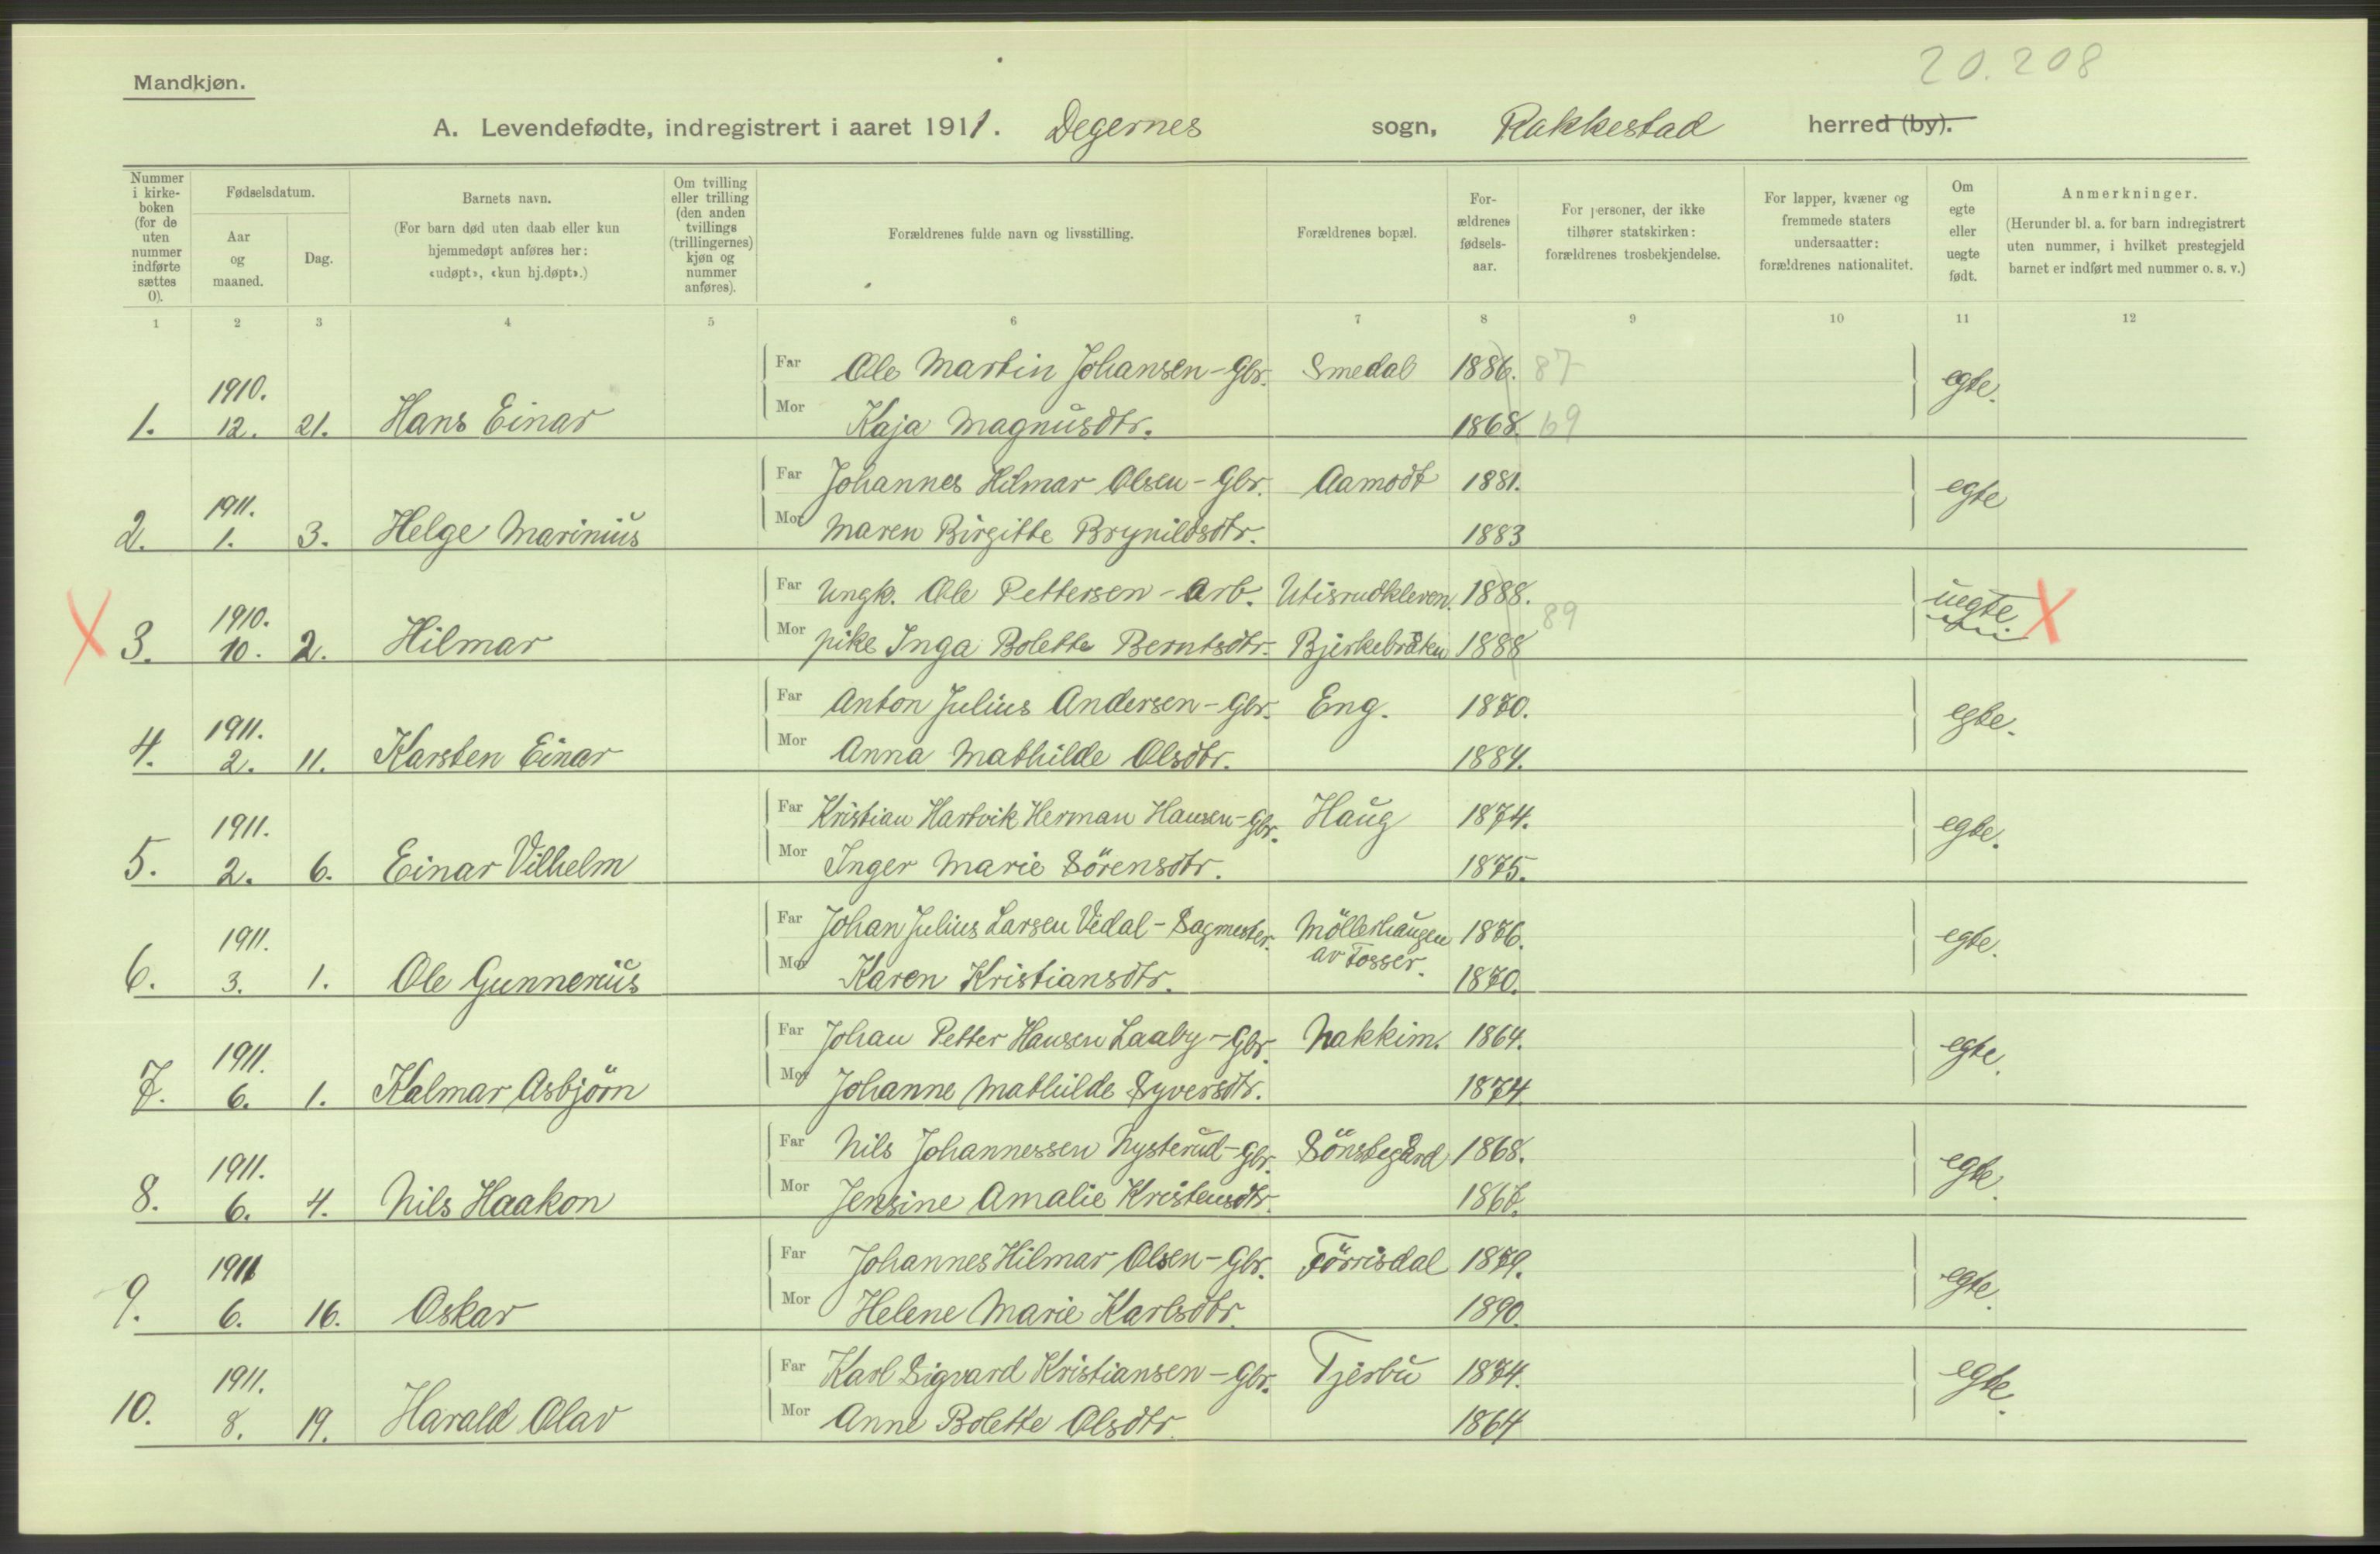 20.208
Mandkjøn.
A. Levendefødte, indregistrert i aaret 1911. Degernes sogn, Rakkestad herred (by).
Nummer i kirkeboken (for de uten nummer indførte sættes 0).
Fødselsdatum.
Aar og maaned.
Dag.
Barnets navn.
(For barn død uten daab eller kun hjemmedøpt anføres her: «udøpt», «kun hj.døpt».)
Om tvilling eller trilling (den anden tvillings (trillingernes) kjøn og nummer anføres).
Forældrenes fulde navn og livsstilling.
Forældrenes bopæl.
Forældrenes fødselsaar.
For personer, der ikke tilhører statskirken: forældrenes trosbekjendelse.
For lapper, kvæner og fremmede staters undersaatter: forældrenes nationalitet.
Om egte eller uegte født.
Anmerkninger.
(Herunder bl. a. for barn indregistrert uten nummer, i hvilket prestegjeld barnet er indført med nummer o. s. v.)
1 2 3 4 5 6 7 8 9 10 11 12
Far Ole Martin Johansen - Gbr. Smedal 1886. 87 egte.
1. 1910. 12. 21. Hans Einar Mor Kaja Magnusdtr. 1868. 69
Far Johannes Hilmar Olsen - Gbr. Aamodt 1881. egte
2. 1911. 1. 3. Helge Marinius Mor Maren Birgitte Brynildsdtr. 1883
Far Ungk. Ole Pettersen - Arb. Utisrudkleven. 1888. uegte. X
X 3. 1910. 10. 2. Hilmar Mor pike Inga Bolette Berntsdtr. Bjerkebråten 1888 89
Far Anton Julius Andersen - Gbr. Eng. 1870. egte.
4. 1911. 2. 11. Karsten Einar Mor Anna Mathilde Olsdtr. 1884.
Far Kristian Hartvik Herman Hansen - Gbr. Haug 1874. egte.
5. 1911. 2. 6. Einar Vilhelm Mor Inger Marie Sörensdtr. 1875.
Far Johan Julius Larsen Vedal - Sagmester. Möllerhaugen av Fosser. 1876. egte.
6. 1911. 3. 1. Ole Gunnerius Mor Karen Kristiansdtr. 1870.
Far Johan Petter Hansen Laaby - Gbr. Nakkim. 1864. egte.
7. 1911. 6. 1. Kalmar Asbjörn Mor Johanne Mathilde Syversdtr. 1874.
Far Nils Johannessen Nysterud - Gbr. Sönstegård 1868. egte.
8. 1911. 6. 4. Nils Haakon Mor Jensine Amalie Kristensdtr. 1867.
Far Johannes Hilmar Olsen - Gbr. Förrisdal 1879. egte.
9. 1911 6. 16. Oskar Mor Helene Marie Karlsdtr. 1890.
Far Karl Sigvard Kristiansen - Gbr. Tjerbu 1874. egte.
10. 1911. 8. 19. Harald Olav Mor Anne Bolette Olsdtr 1864